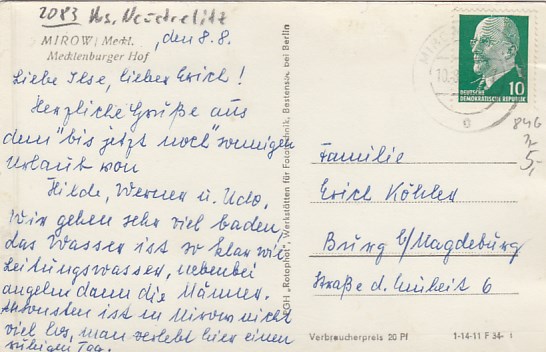 2083 Krs. Neustrelitz
MIROW / Meckl.
Mecklenburger Hof
, den 8.8.
Liebe Ilse, lieber Erich!
Herzliche Grüße aus
dem "bis jetzt noch" sonnigen
Urlaub von
Hilde, Werner u. Udo.
Wir gehen sehr viel baden,
das Wasser ist so klar wie
Leitungswasser, nebenbei
angeln dann die Männer.
Ansonsten ist in Mirow nicht
viel los, man verlebt hier einen
ruhigen Tag.
PGH „Rotophot", Werkstätten für Fototechnik, Bestensee bei Berlin
MIROW
10
DEUTSCHE
DEMOKRATISCHE REPUBLIK
10
e
846
5,-
Familie
Erich Köhler
Burg b/Magdeburg
Straße d. Einheit 6
Verbraucherpreis 20 Pf
1-14-11 F 34-